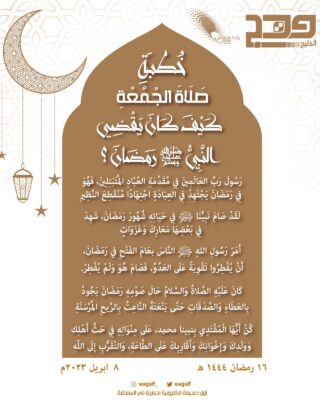 وهج
الخليج
خُطْبَةُ
صَلَاةَ الجُمْعَةِ
كَيْفَ كَانَ يَقْضِي
النَّبِيُّ ﷺ رَمَضَانَ؟
رَسُولُ رَبِّ العَالَمِينَ فِي مُقَدِّمَةِ العُبَّادِ المُتَبَتِّلِينَ، فَهُوَ
فِي رَمَضَانَ يَجْتَهِدُ فِي العِبَادَةِ اجْتِهَادًا مُنْقَطِعَ النَّظِيرِ
لَقَدْ صَامَ نَبِيُّنَا ﷺ فِي حَيَاتِهِ شُهُورَ رَمَضَانَ، شَهِدَ
فِي بَعْضِهَا مَعَارِكَ وَغَزَوَاتٍ
أَمَرَ رَسُولُ اللهِ ﷺ النَّاسَ بِعَامِ الفَتْحِ فِي رَمَضَانَ،
أَنْ يُفْطِرُوا تَقْوِيَةً عَلَى العَدُوِّ، فَصَامَ هُوَ وَلَمْ يُفْطِرْ
كَانَ عَلَيْهِ الصَّلَاةُ وَالسَّلَامُ حَالَ صَوْمِهِ رَمَضَانَ يَجُودُ
بِالعَطَاءِ وَالصَّدَقَاتِ حَتَّى يَنْعَتَهُ النَّاعِتُ بِالرِّيحِ المُرْسَلَةِ
كُنْ أَيُّهَا المُقْتَدِي بنبينا محمد، عَلَى مِنْوَالِهِ فِي حَثِّ أَهْلِكَ
وَوَلَدِكَ وَإِخْوَانِكَ وَأَقَارِبِكَ عَلَى الطَّاعَةِ، وَالتَّقَرُّبِ إِلَى اللهِ
١٦ رمضان ١٤٤٤ هـ
٨ ابريل ٢٠٢٣م
wagulf_ wagulf
اول صحيفة الكترونية اخبارية في السلطنة